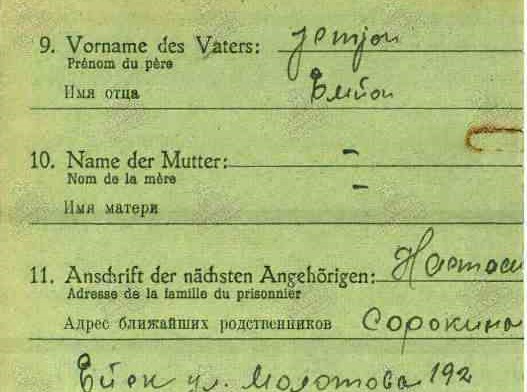 9. Vorname des Vaters:
Prénom du père
Имя отца
10. Name der Mutter: -
Nom de la mère -
Имя матери
11. Anschrift der nächsten Angehörigen:
Adresse de la famille du prisonnier
Адрес ближайших родственников Сорокина
ул. Молотова 192